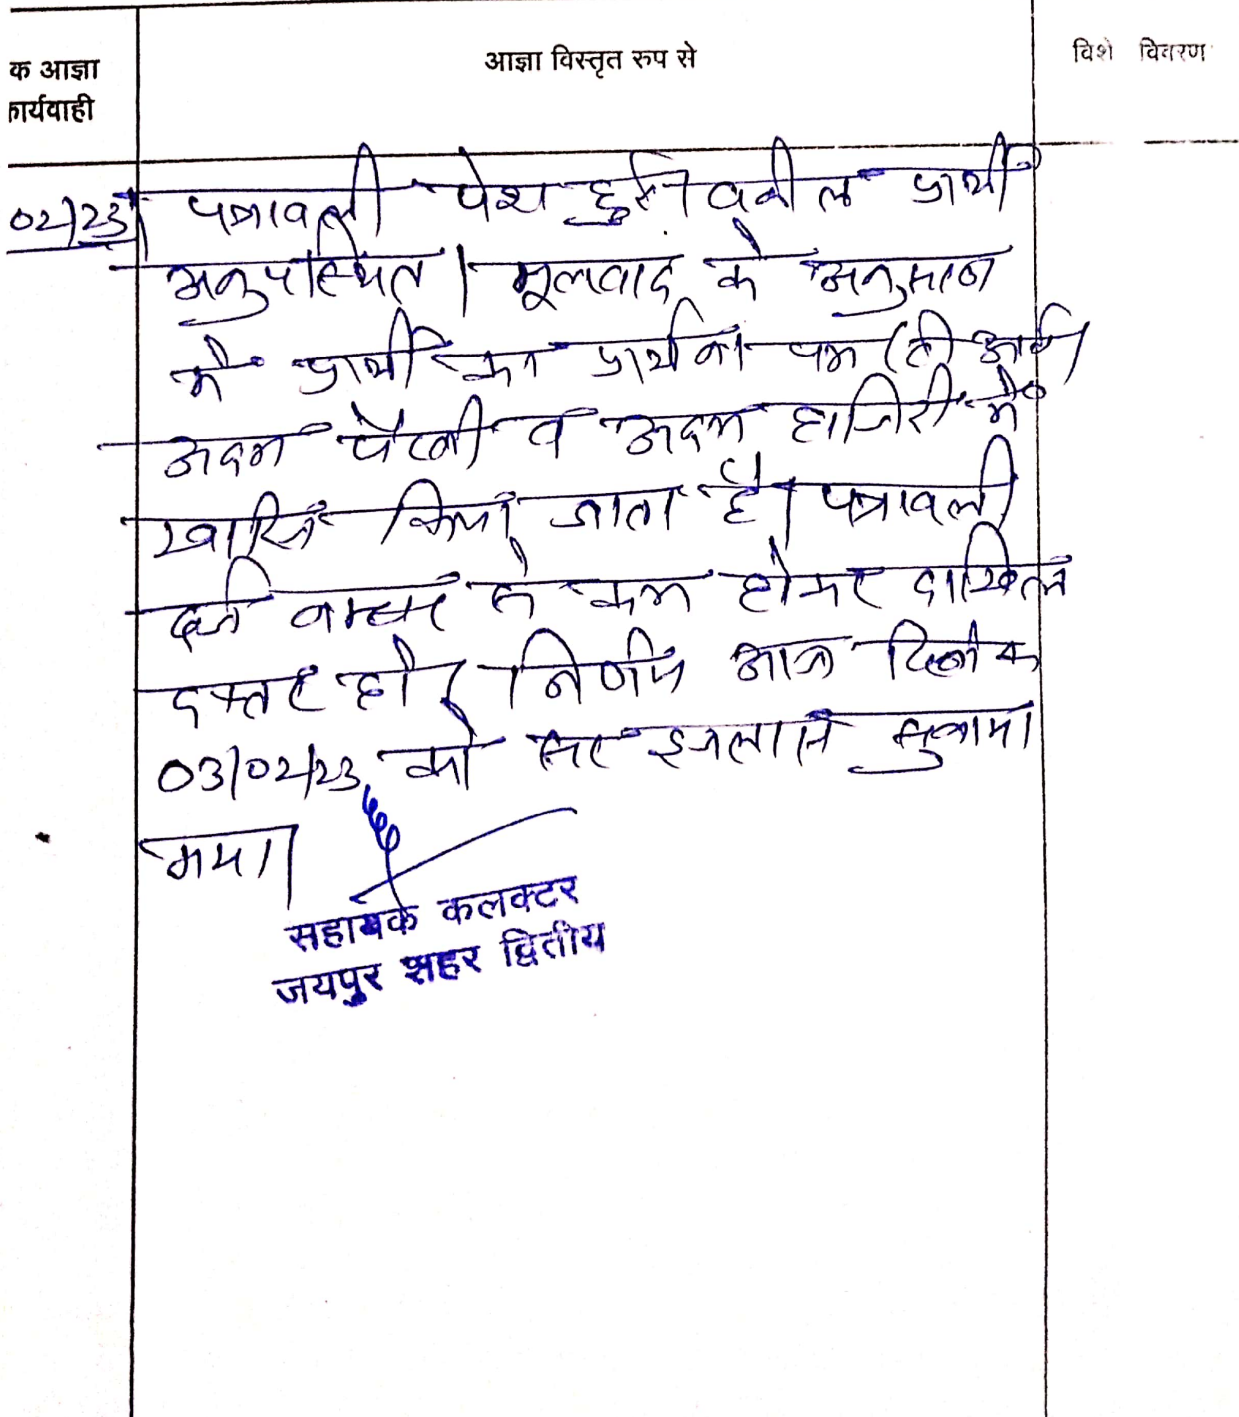 क आज्ञा
कार्यवाही
आज्ञा विस्तृत रुप से
विशे विवरण
02/23
पत्रावली पेश हुई। वकील प्रार्थी
अनुपस्थित। मूलवाद के अनुसरण
में प्रार्थी का प्रार्थना पत्र (टी आई)
अदम पैरवी व अदम हाजिरी में
खारिज किया जाता है। पत्रावली
दर्ज नम्बर से कम होकर दाखिल
दफ्तर हो। निर्णय आज दिनांक
03/02/23 को सर इजलास सुनाया
गया।
सहायक कलक्टर
जयपुर शहर द्वितीय